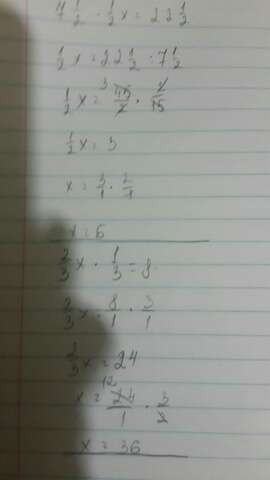 7 1/2 · 1/2 x = 22 1/2
1/2 x = 22 1/2 : 7 1/2
1/2 x = 3 45/2 · 2/15
1/2 x = 3
x = 3/1 · 2/1
x = 6
2/3 x · 1/3 = 8
2/3 x = 8/1 · 3/1
2/3 x = 24
x = 12 24/1 · 3/2
x = 36